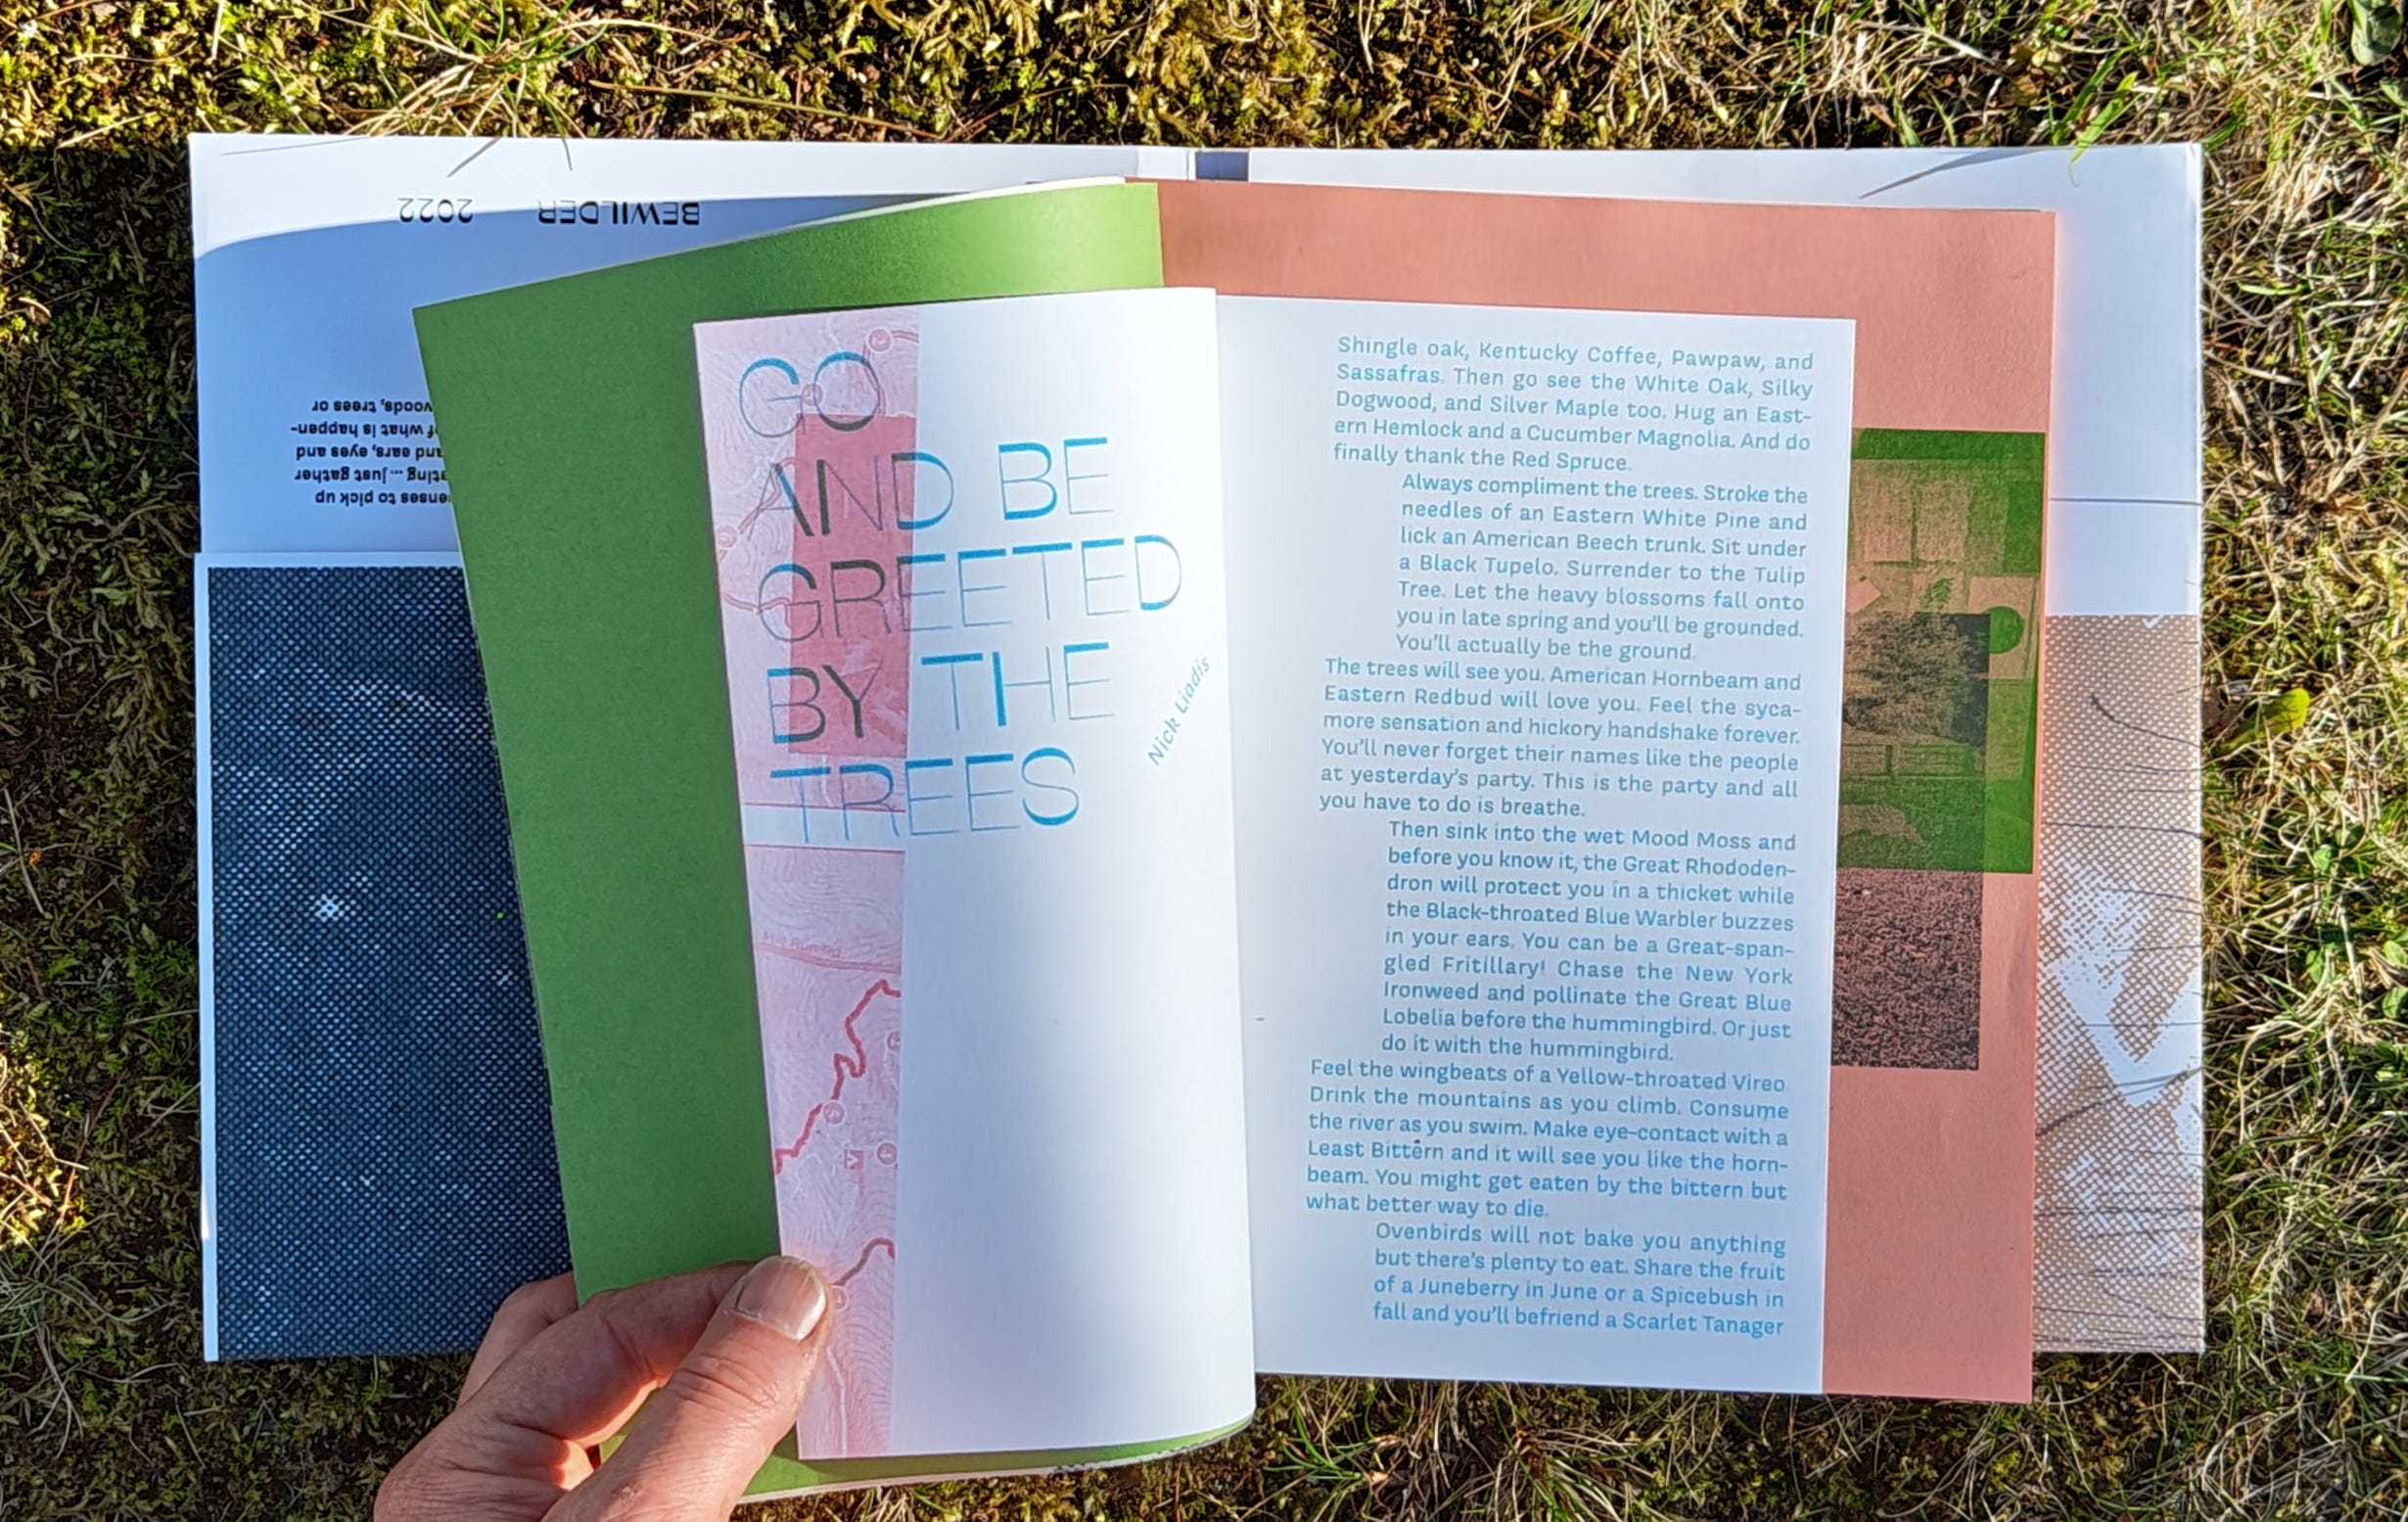 BEWILDER 2022
senses to pick up
ating ... just gather
and ears, eyes and
of what is happen-
woods, trees or
GO
AND BE
GREETED
BY THE
TREES
Nick Liadis
Mill Run Rd
Shingle oak, Kentucky Coffee, Pawpaw, and
Sassafras. Then go see the White Oak, Silky
Dogwood, and Silver Maple too. Hug an East-
ern Hemlock and a Cucumber Magnolia. And do
finally thank the Red Spruce.
Always compliment the trees. Stroke the
needles of an Eastern White Pine and
lick an American Beech trunk. Sit under
a Black Tupelo. Surrender to the Tulip
Tree. Let the heavy blossoms fall onto
you in late spring and you'll be grounded.
You'll actually be the ground.
The trees will see you. American Hornbeam and
Eastern Redbud will love you. Feel the syca-
more sensation and hickory handshake forever.
You'll never forget their names like the people
at yesterday's party. This is the party and all
you have to do is breathe.
Then sink into the wet Mood Moss and
before you know it, the Great Rhododen-
dron will protect you in a thicket while
the Black-throated Blue Warbler buzzes
in your ears. You can be a Great-span-
gled Fritillary! Chase the New York
Ironweed and pollinate the Great Blue
Lobelia before the hummingbird. Or just
do it with the hummingbird.
Feel the wingbeats of a Yellow-throated Vireo.
Drink the mountains as you climb. Consume
the river as you swim. Make eye-contact with a
Least Bittern and it will see you like the horn-
beam. You might get eaten by the bittern but
what better way to die.
Ovenbirds will not bake you anything
but there's plenty to eat. Share the fruit
of a Juneberry in June or a Spicebush in
fall and you'll befriend a Scarlet Tanager